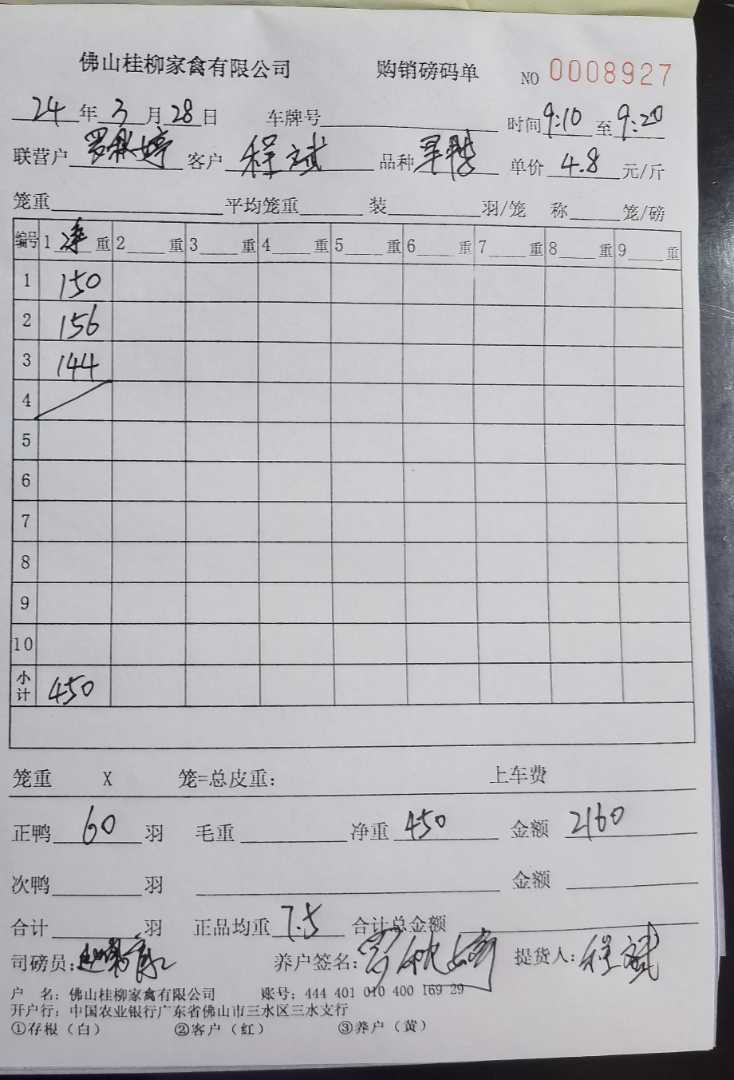 佛山桂柳家禽有限公司 购销磅码单 NO 0008927
24年3月28日 车牌号 时间9:10至9:20
联营户 客户 程斌 品种 单价4.8元/斤
笼重 平均笼重 装 羽/笼 称 笼/磅
编号 1 净 重 2 重 3 重 4 重 5 重 6 重 7 重 8 重 9 重
1 150
2 156
3 144
4
5
6
7
8
9
10
小计 450
笼重 X 笼=总皮重: 上车费
正鸭 60 羽 毛重 净重 450 金额 2160
次鸭 羽 金额
合计 羽 正品均重 7.5 合计总金额
司磅员: 养户签名: 提货人: 程斌
户 名: 佛山桂柳家禽有限公司 账号: 444 401 010 400 169 29
开户行: 中国农业银行广东省佛山市三水区三水支行
①存根（白） ②客户（红） ③养户（黄）